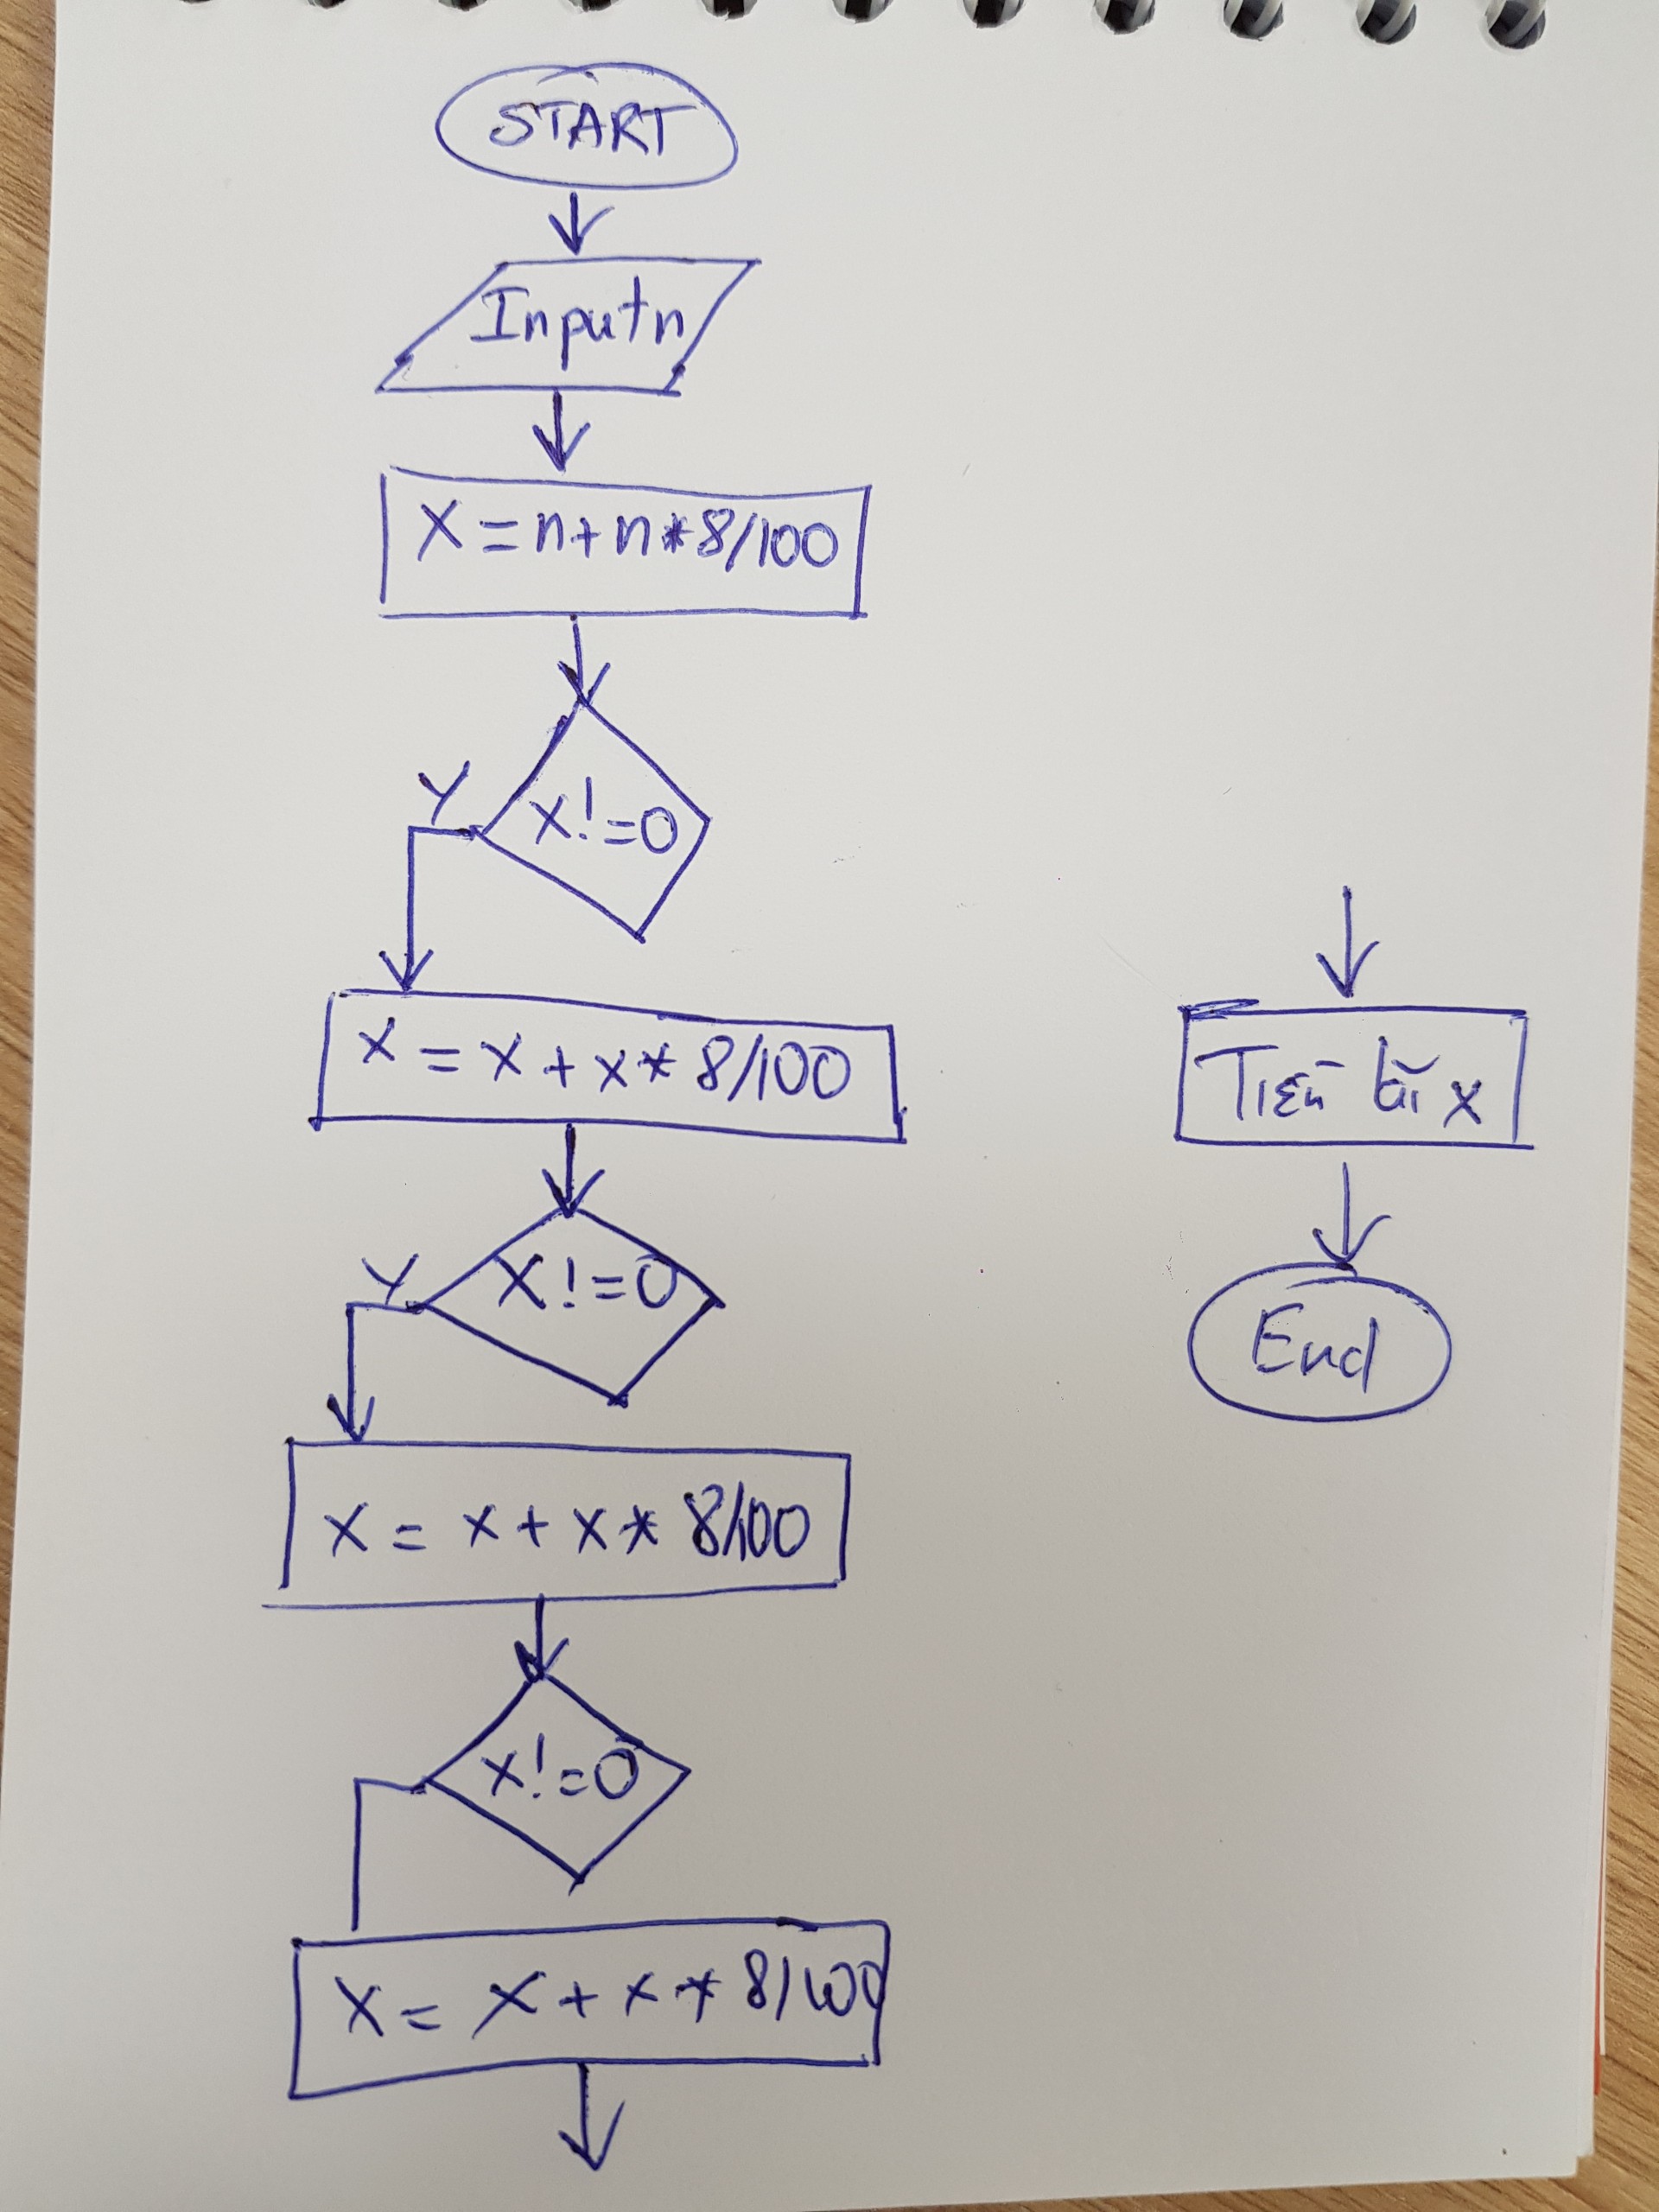 START
Input n
X = n + n * 8/100
x != 0
Y
x = x + x * 8/100
X != 0
Y
x = x + x * 8/100
x! = 0
X = x + x * 8/100
Tiền lãi x
End